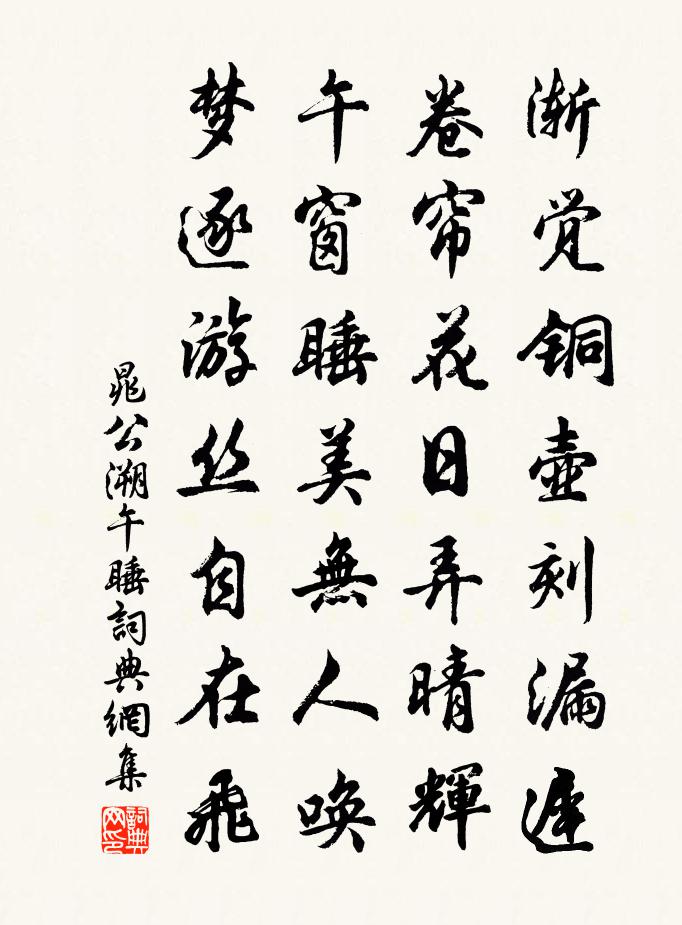 渐觉铜壶刻漏遲
卷帘花日弄晴輝
午窗睡美無人唤
梦逐游丝自在飛
晁公溯午睡詞典網集
詞典网印